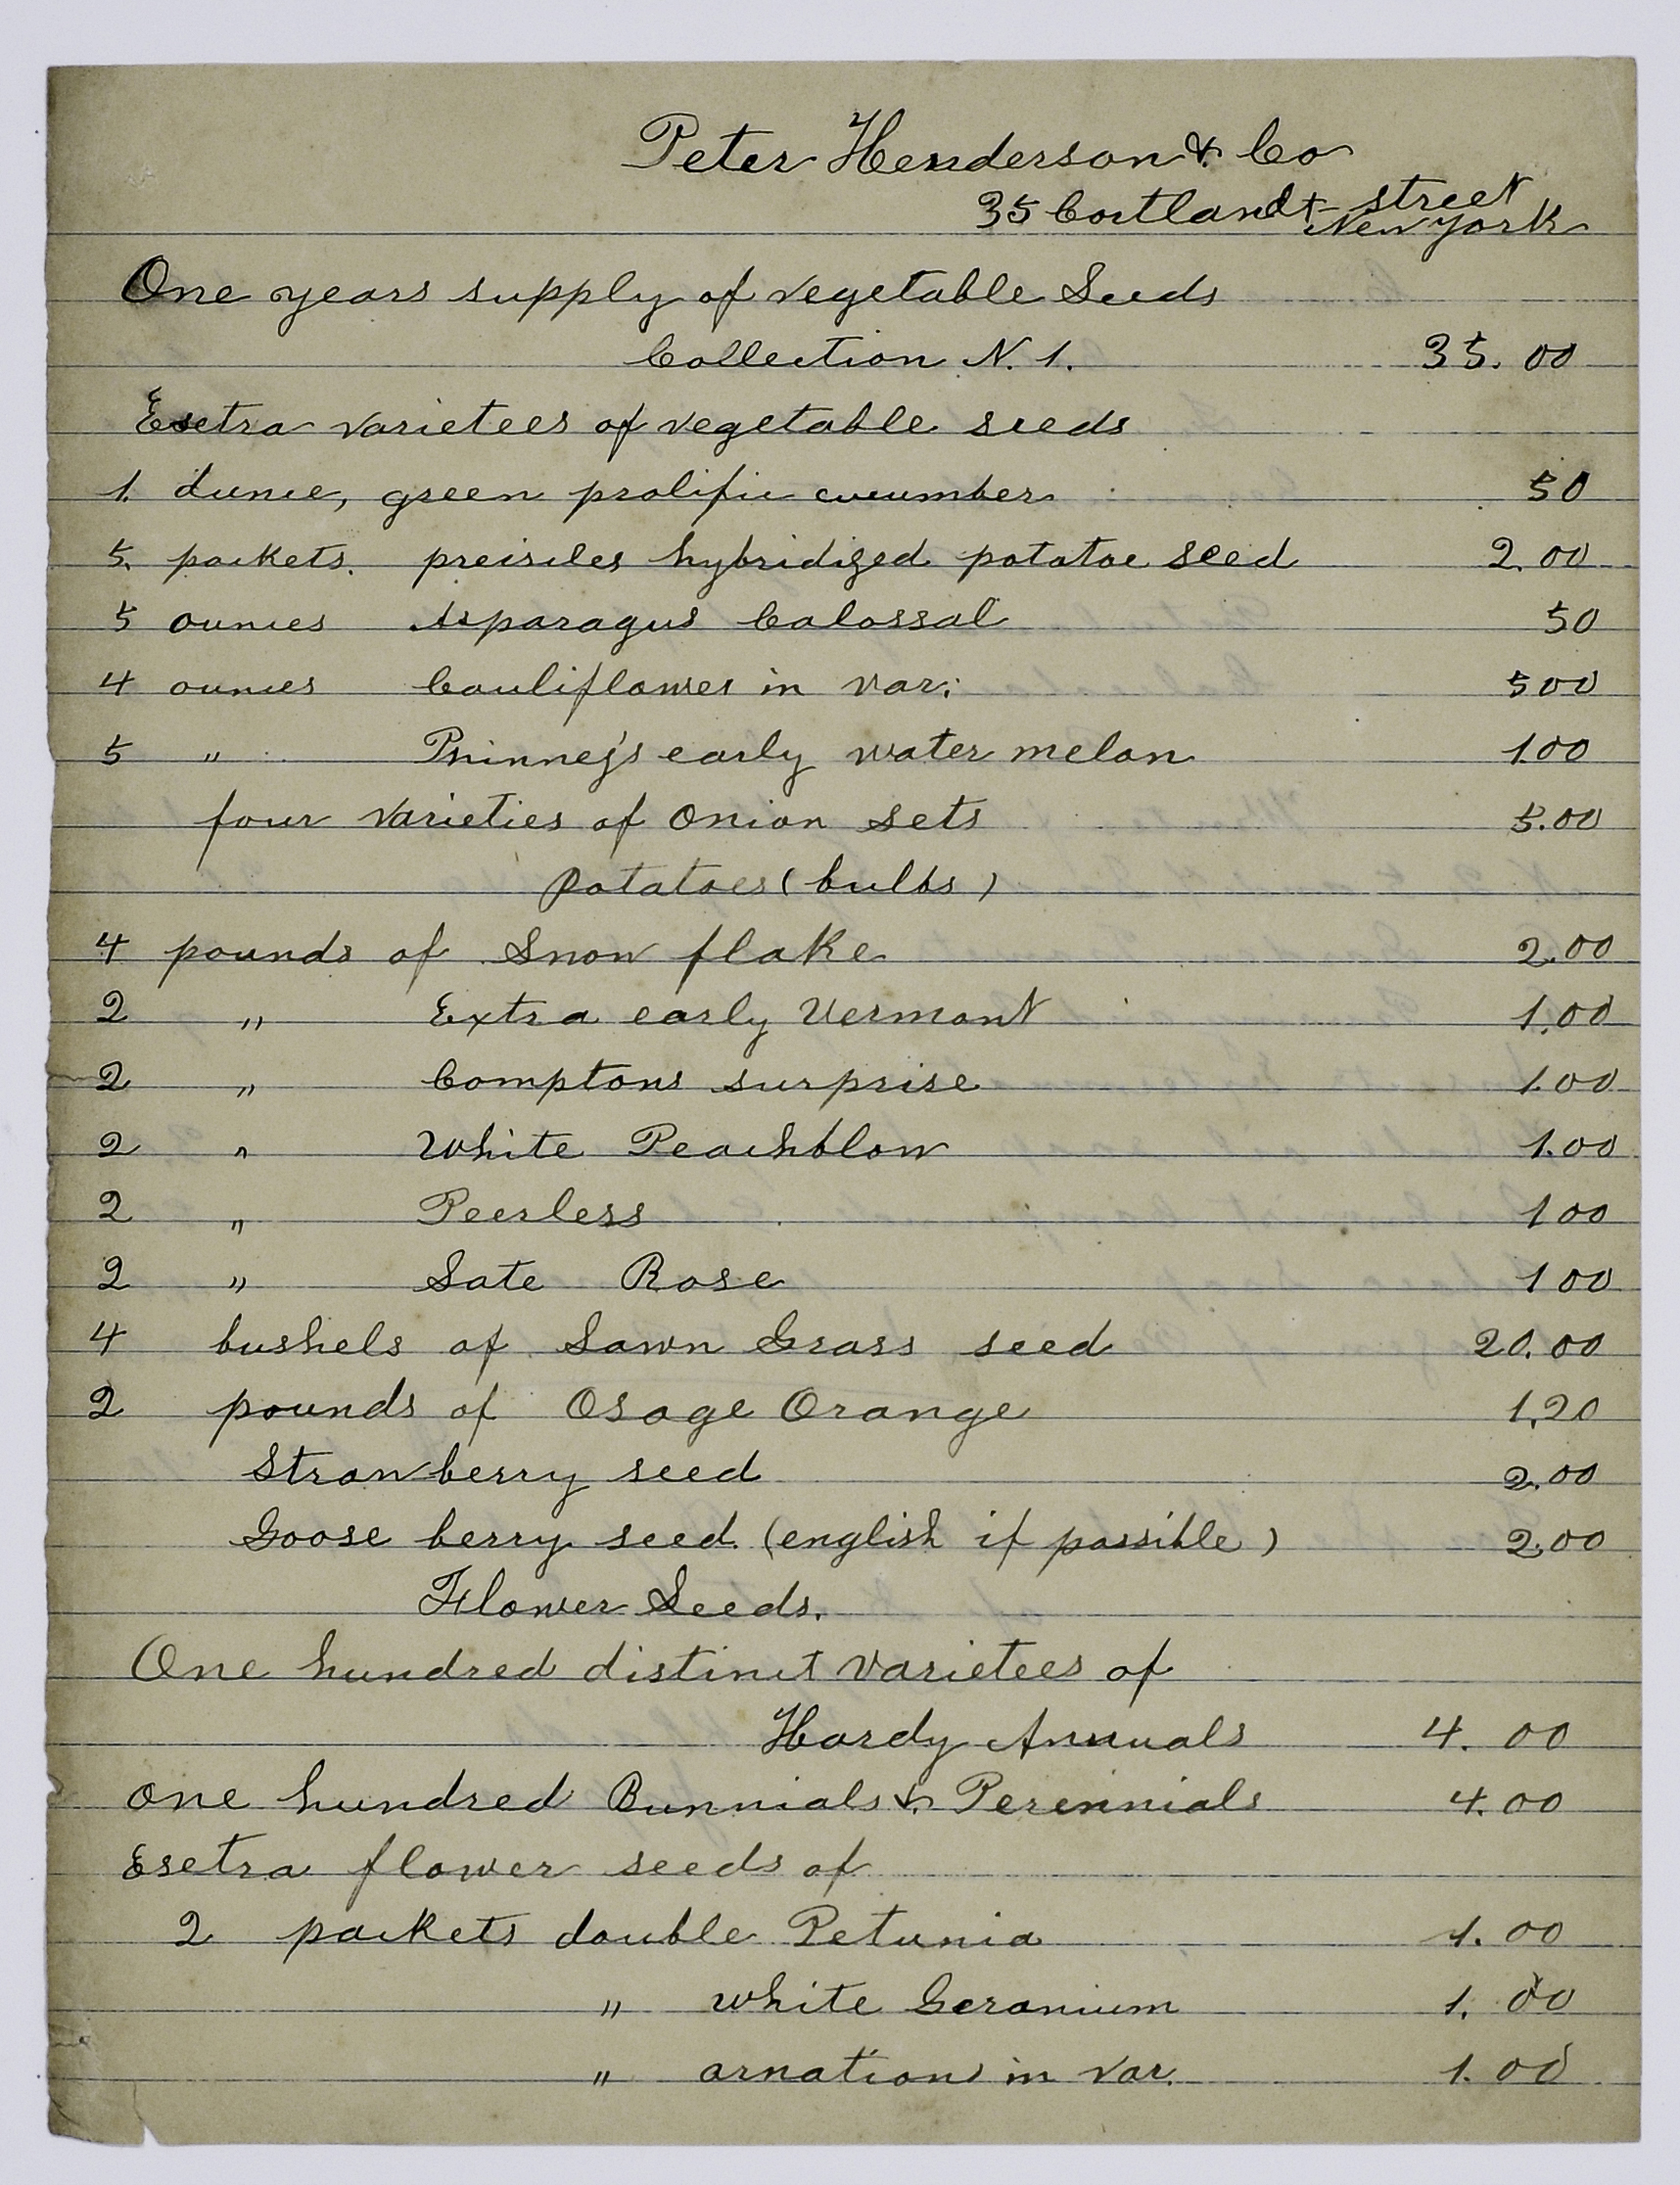 Peter Henderson & Co
35 Cortlandt street
New York
One years supply of vegetable Seeds
Collection N. 1. 35.00
Esetra varietees of vegetable seeds
1. ounce, green prolific cucumber 50
5. packets. hybridized potatoe seed 2.00
5 ounces Asparagus Colossal 50
4 ounces Cauliflower in var: 500
5 " Phinney's early water melon 1.00
four varieties of Onion sets 5.00
Potatoes (bulbs)
4 pounds of Snow flake 2.00
2 " Extra early Vermont 1.00
2 " Comptons surprise 1.00
2 " White Peachblow 1.00
2 " Peerless 1 00
2 " Late Rose 1 00
4 bushels of Lawn Grass seed 20.00
2 pounds of Osage Orange 1,20
Strawberry seed 2.00
Goose berry seed (english if possible) 2.00
Flower Seeds.
One hundred distinct varietees of
Hardy Annuals 4.00
One hundred Bunnials & Perennials 4.00
Esetra flower seeds of
2 packets double Petunia 1.00
" white Geranium 1.00
" arnations in var. 1.00